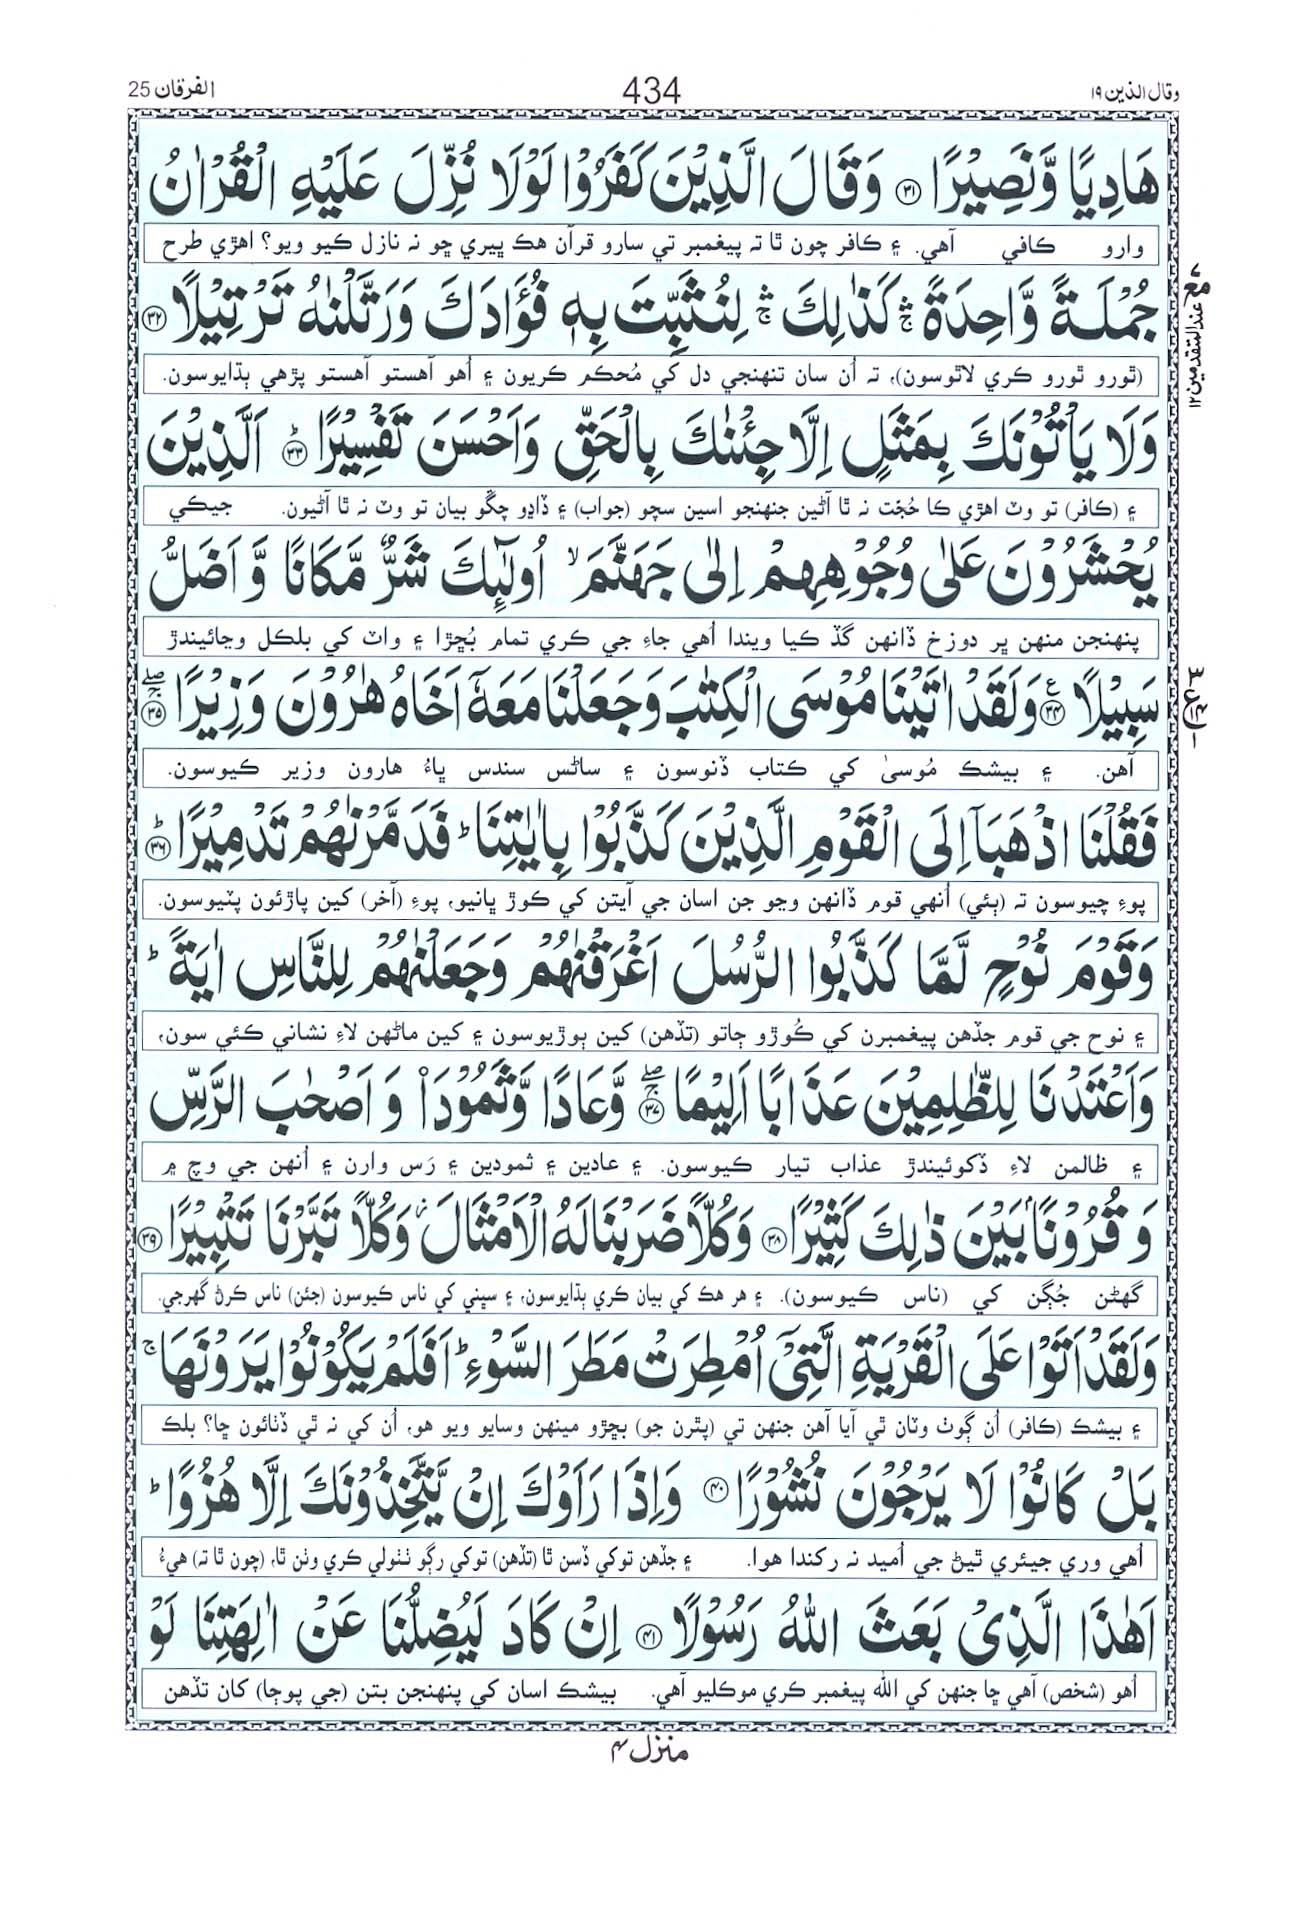 وقال الذين ١٩
434
الفرقان 25
هَادِيًا وَّنَصِيْرًا ۝٣١ وَقَالَ الَّذِيْنَ كَفَرُوْا لَوْلَا نُزِّلَ عَلَيْهِ الْقُرْاٰنُ
وارو ڪافي آهي. ۽ ڪافر چون ٿا ته پيغمبر تي سارو قرآن هڪ ڀيري ڇو نه نازل ڪيو ويو؟ اهڙي طرح
جُمْلَةً وَّاحِدَةً ۛۚ كَذٰلِكَ ۛۚ لِنُثَبِّتَ بِهٖ فُؤَادَكَ وَرَتَّلْنٰهُ تَرْتِيْلًا ۝٣٢
(ٿورو ٿورو ڪري لاٿوسون)، ته اُن سان تنهنجي دل کي مُحڪم ڪريون ۽ اُهو آهستو آهستو پڙهي ٻڌايوسون.
وَلَا يَاْتُوْنَكَ بِمَثَلٍ اِلَّا جِئْنٰكَ بِالْحَقِّ وَاَحْسَنَ تَفْسِيْرًا ۝٣٣ؕ اَلَّذِيْنَ
۽ (ڪافر) تو وٽ اهڙي ڪا حُجّت نه ٿا آڻين جنهنجو اسين سچو (جواب) ۽ ڏاڍو چڱو بيان تو وٽ نه ٿا آڻيون. جيڪي
يُحْشَرُوْنَ عَلٰى وُجُوْهِهِمْ اِلٰى جَهَنَّمَ ۙ اُولٰٓئِكَ شَرٌّ مَّكَانًا وَّاَضَلُّ
پنهنجن منهن ڀر دوزخ ڏانهن گڏ ڪيا ويندا اُهي جاءِ جي ڪري تمام بُڇڙا ۽ واٽ کي بلڪل وڃائيندڙ
سَبِيْلًا ۝٣٤ع وَلَقَدْ اٰتَيْنَا مُوْسَى الْكِتٰبَ وَجَعَلْنَا مَعَهٗٓ اَخَاهُ هٰرُوْنَ وَزِيْرًا ۝٣٥ۖۚ
آهن. ۽ بيشڪ مُوسىٰ کي ڪتاب ڏنوسون ۽ ساڻس سندس ڀاءُ هارون وزير ڪيوسون.
فَقُلْنَا اذْهَبَآ اِلَى الْقَوْمِ الَّذِيْنَ كَذَّبُوْا بِاٰيٰتِنَا ؕ فَدَمَّرْنٰهُمْ تَدْمِيْرًا ۝٣٦ؕ
پوءِ چيوسون ته (ٻئي) اُنهي قوم ڏانهن وڃو جن اسان جي آيتن کي ڪوڙ ڀانيو، پوءِ (آخر) کين پاڙئون پٽيوسون.
وَقَوْمَ نُوْحٍ لَّمَّا كَذَّبُوا الرُّسُلَ اَغْرَقْنٰهُمْ وَجَعَلْنٰهُمْ لِلنَّاسِ اٰيَةً ؕ
۽ نوح جي قوم جڏهن پيغمبرن کي ڪُوڙو ڄاتو (تڏهن) کين ٻوڙيوسون ۽ کين ماڻهن لاءِ نشاني ڪئي سون،
وَاَعْتَدْنَا لِلظّٰلِمِيْنَ عَذَابًا اَلِيْمًا ۝٣٧ۖۚ وَّعَادًا وَّثَمُوْدَا۟ وَاَصْحٰبَ الرَّسِّ
۽ ظالمن لاءِ ڏکوئيندڙ عذاب تيار ڪيوسون. ۽ عادين ۽ ثمودين ۽ رَس وارن ۽ اُنهن جي وچ ۾
وَقُرُوْنًۢا بَيْنَ ذٰلِكَ كَثِيْرًا ۝٣٨ وَكُلًّا ضَرَبْنَا لَهُ الْاَمْثَالَ ؗ وَكُلًّا تَبَّرْنَا تَتْبِيْرًا ۝٣٩
گهڻن جُڳن کي (ناس ڪيوسون). ۽ هر هڪ کي بيان ڪري ٻڌايوسون، ۽ سڀني کي ناس ڪيوسون (جئن) ناس ڪرڻ گهرجي.
وَلَقَدْ اَتَوْا عَلَى الْقَرْيَةِ الَّتِيْٓ اُمْطِرَتْ مَطَرَ السَّوْءِ ؕ اَفَلَمْ يَكُوْنُوْا يَرَوْنَهَا ۚ
۽ بيشڪ (ڪافر) اُن ڳوٺ وٽان ٿي آيا آهن جنهن تي (پٿرن جو) بڇڙو مينهن وسايو ويو هو، اُن کي نه ٿي ڏٺائون ڇا؟ بلڪ
بَلْ كَانُوْا لَا يَرْجُوْنَ نُشُوْرًا ۝٤٠ وَاِذَا رَاَوْكَ اِنْ يَّتَّخِذُوْنَكَ اِلَّا هُزُوًا ؕ
اُهي وري جيئري ٿيڻ جي اُميد نه رکندا هوا. ۽ جڏهن توکي ڏسن ٿا (تڏهن) توکي رڳو ٺٺولي ڪري وٺن ٿا، (چون ٿا ته) هيءُ
اَهٰذَا الَّذِيْ بَعَثَ اللّٰهُ رَسُوْلًا ۝٤١ اِنْ كَادَ لَيُضِلُّنَا عَنْ اٰلِهَتِنَا لَوْ
اُهو (شخص) آهي ڇا جنهن کي الله پيغمبر ڪري موڪليو آهي. بيشڪ اسان کي پنهنجن بتن (جي پوڄا) کان تڏهن
منزل ٤
مع
عند المتقدمين ١٢